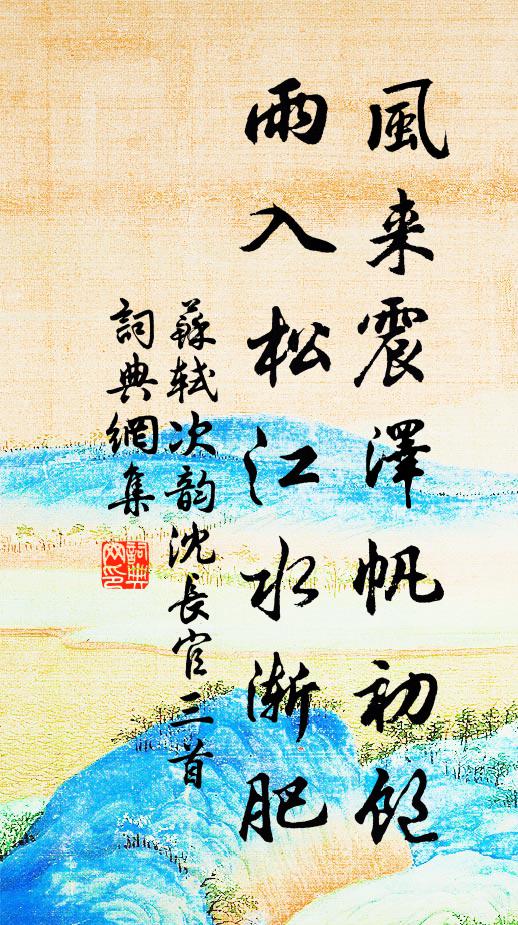 風来震澤帆初飽
雨入松江水漸肥
蘇軾次韵沈長官三首
詞典網集
詞典
网印